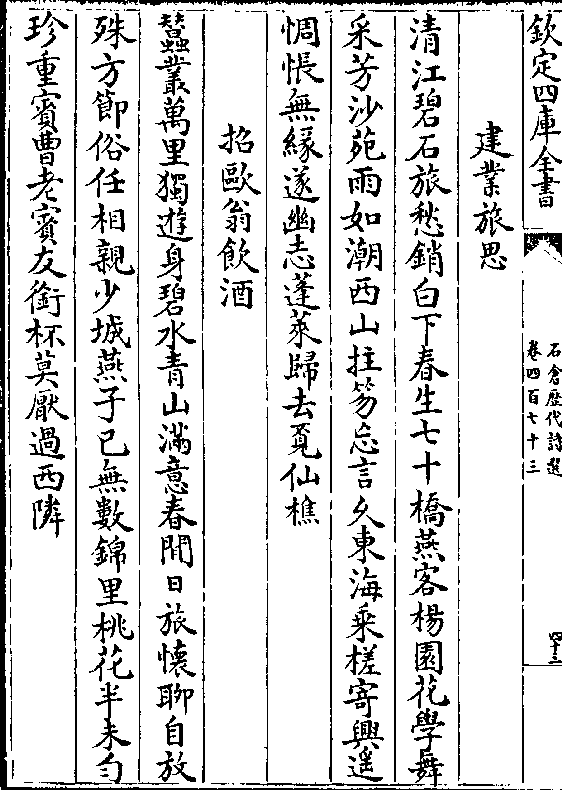 欽定四庫全書
石倉歷代詩選
卷四百七十三
四十三
建業旅思
清江碧石旅愁銷白下春生七十橋燕客楊園花學舞
采芳沙苑雨如潮西山拄笏忘言久東海乘槎寄興遥
惆悵無緣遂幽志蓬萊歸去覓仙樵
招歐翁飲酒
蠶叢萬里獨遊身碧水青山滿意春閒日旅懷聊自放
殊方節俗任相親少城燕子已無數錦里桃花半未勻
珍重賓曹老賓友銜杯莫厭過西隣